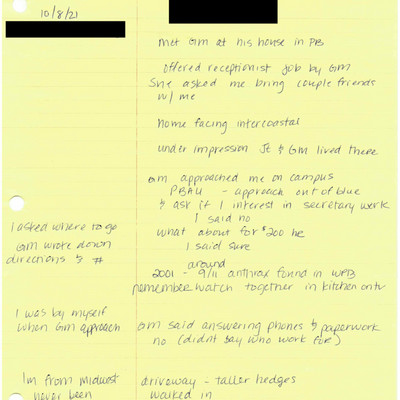 10/8/21
met GM at his house in PB
offered receptionist job by GM
She asked me bring couple friends
w/ me
home facing intercoastal
under impression JE & GM lived there
GM approached me on campus
PBAU - approach out of blue
& ask if I interest in secretary work
I said no
I asked where to go
what about for $200 he
GM wrote down
I said sure
directions & #
around
2001 - 9/11 anthrax found in WPB
remember watch together in kitchen on tv
I was by myself
when GM approach
GM said answering phones & paperwork
no (didn't say who work for)
I'm from midwest
driveway - taller hedges
never been
walked in